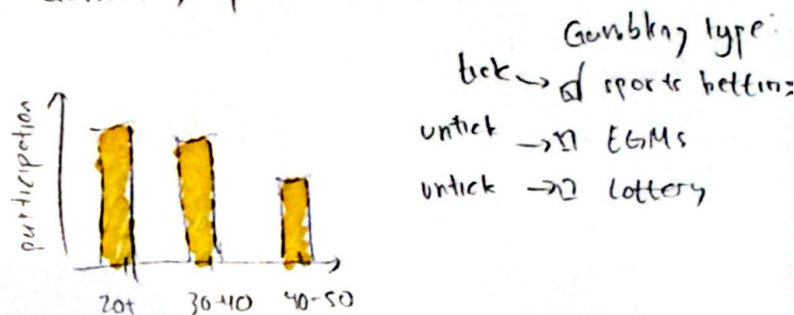 Gambling type:
tick → ☑ sports betting
untick → □ EGMs
untick → □ lottery
participation
20+ 30-40 40-50